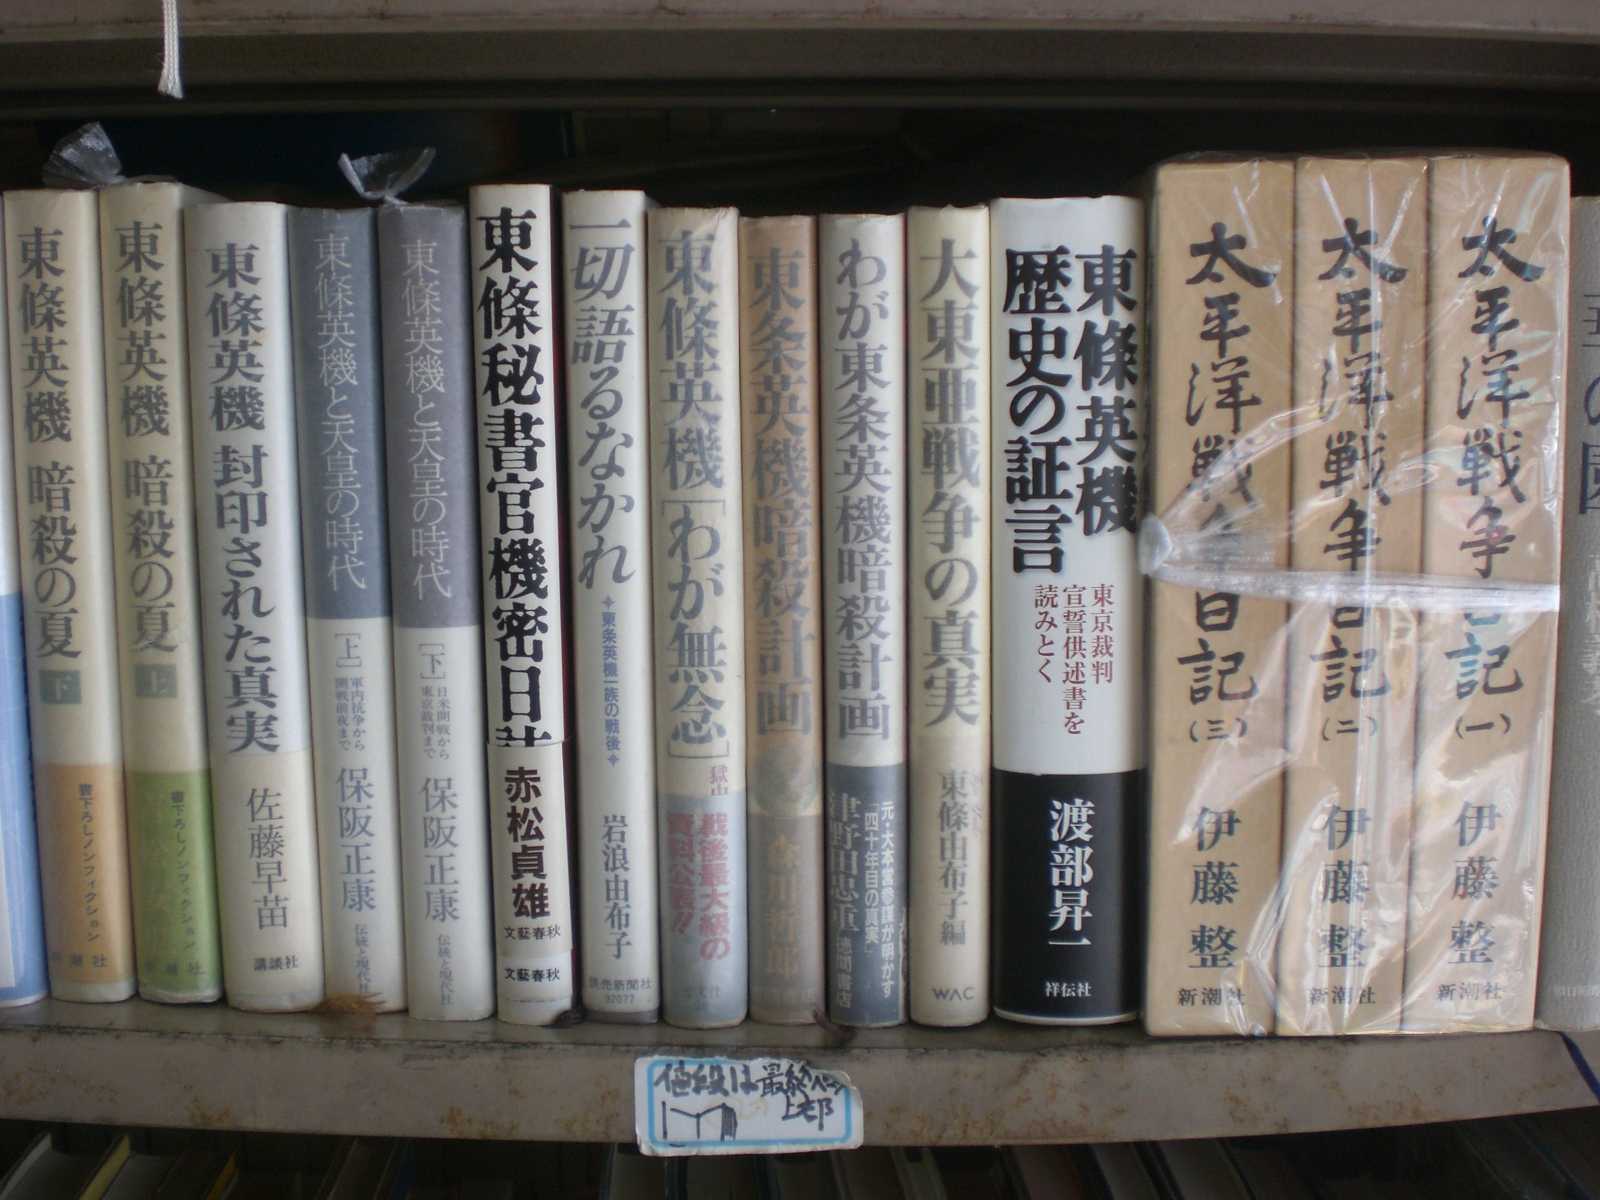 東條英機 暗殺の夏 下
書下ろしノンフィクション
新潮社
東條英機 暗殺の夏 上
書下ろしノンフィクション
新潮社
東條英機 封印された真実
佐藤早苗
講談社
東條英機と天皇の時代
[上]
軍内抗争から
開戦前夜まで
保阪正康
伝統と現代社
東條英機と天皇の時代
[下]
日米開戦から
東京裁判まで
保阪正康
伝統と現代社
東條秘書官機密日誌
赤松貞雄
文藝春秋
文藝春秋
一切語るなかれ
東条英機一族の戦後
岩浪由布子
読売新聞社
東條英機[わが無念]
戦後最大級の
資料公表!!
東条英機暗殺計画
森川哲郎
わが東条英機暗殺計画
元・大本営参謀が明かす
「四十年目の真実」
津野田忠重
徳間書店
大東亜戦争の真実
東條由布子編
WAC
東條英機
歴史の証言
東京裁判
宣誓供述書を
読みとく
渡部昇一
祥伝社
太平洋戦争日記
(三)
伊藤整
新潮社
太平洋戦争日記
(二)
伊藤整
新潮社
太平洋戦争日記
(一)
伊藤整
新潮社
値段は最終ページ
上部